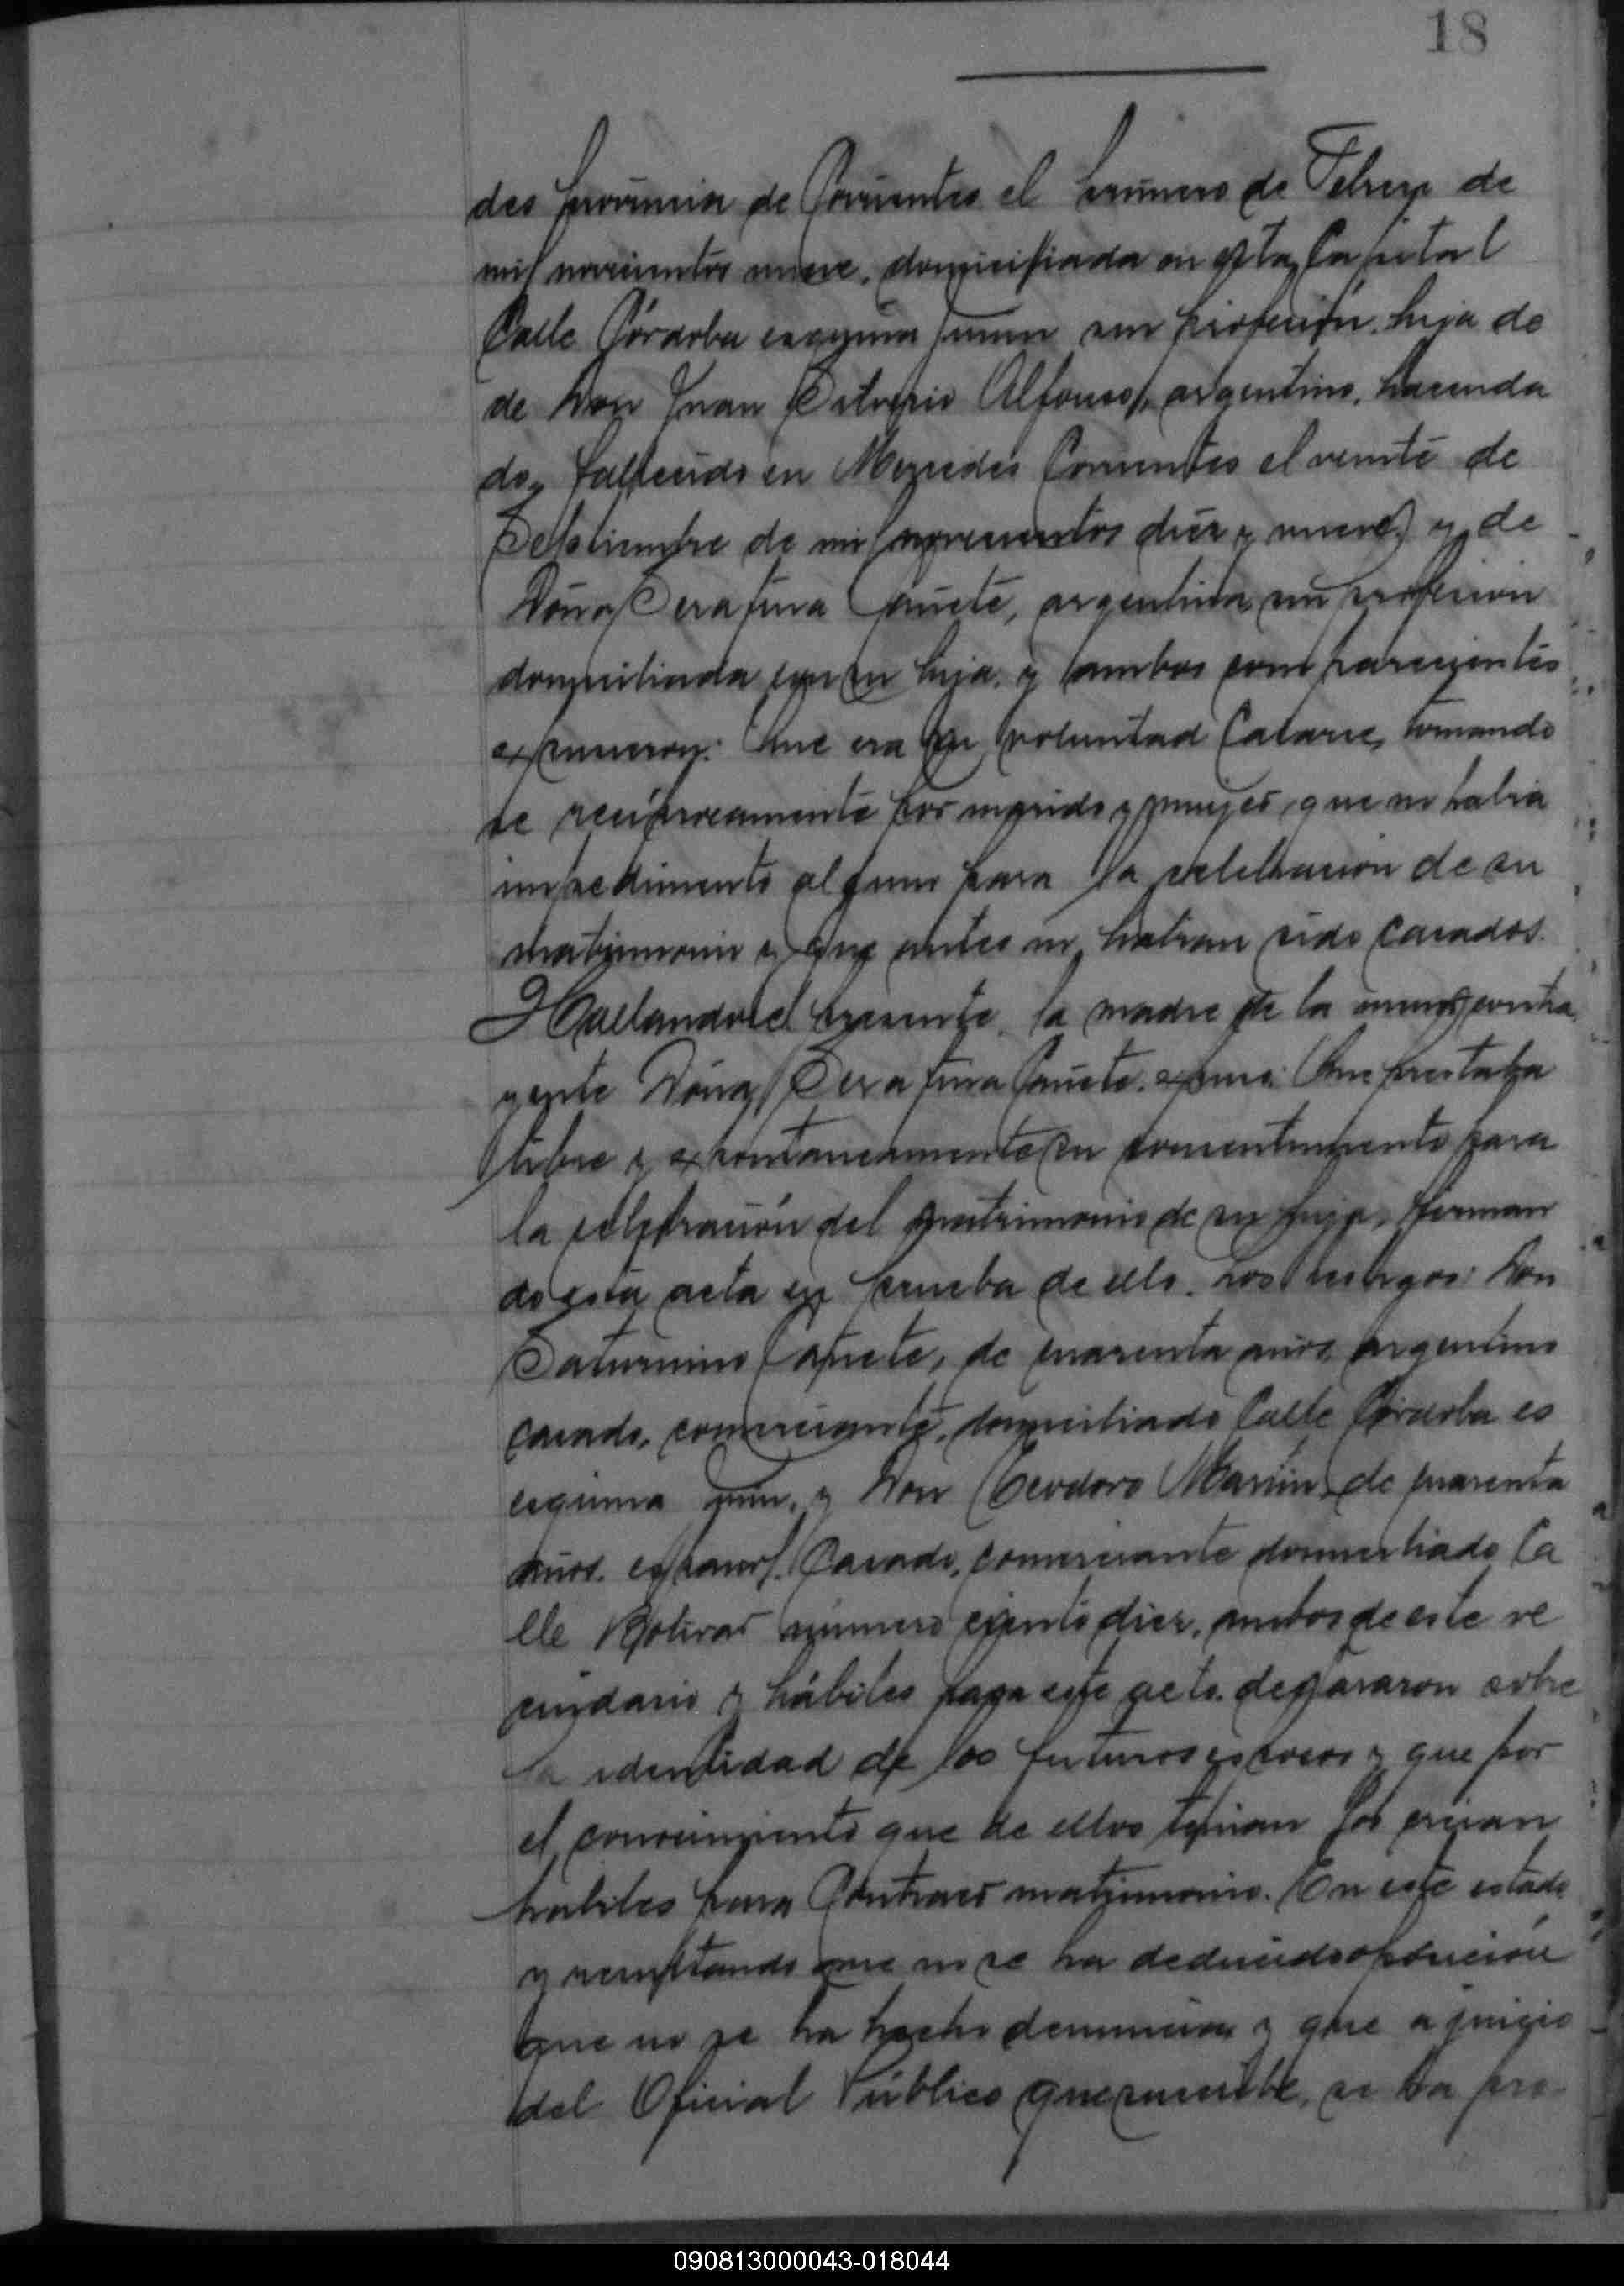 18
des provincia de Corrientes el primero de Febrero de
mil novecientos nueve, domiciliada en esta Capital
Calle Córdoba esquina Junin sin profesión, hija de
de Don Juan Silverio Alfonso, argentino, hacenda
do, fallecido en Mercedes Corrientes el veinte de
Septiembre de mil novecientos diez y nueve, y de
Doña Serafina Cañete, argentina sin profesion
domiciliada con su hija. y ambos comparecientes
expusieron: Que era su voluntad Casarse, tomando
se recíprocamente por marido y mujer, que no habia
impedimento alguno para la celebracion de su
matrimonio y que antes no habian sido casados.
Hallandose presente la madre de la menor contra
yente Doña Serafina Cañete. expuso: Que prestaba
libre y expontaneamente su consentimiento para
la celebración del matrimonio de su hija, firman
do esta acta en prueba de ello. Los testigos: Don
Saturnino Cañete, de cuarenta años, argentino
casado, comerciante, domiciliado Calle Córdoba es
esquina y Don Teodoro Martin de cuarenta
años. español. Casado, comerciante domiciliado Ca
lle Bolivar número ciento diez, ambos de este ve
cindario y hábiles para este acto. declararon sobre
la identidad de los futuros esposos y que por
el conocimiento que de ellos tenian los creian
habiles para Contraer matrimonio. En este estado
y resultando que no se ha deducido oposición
que no se ha hecho denuncia y que a juicio
del Oficial Público que suscribe, se ha pro
090813000043-018044